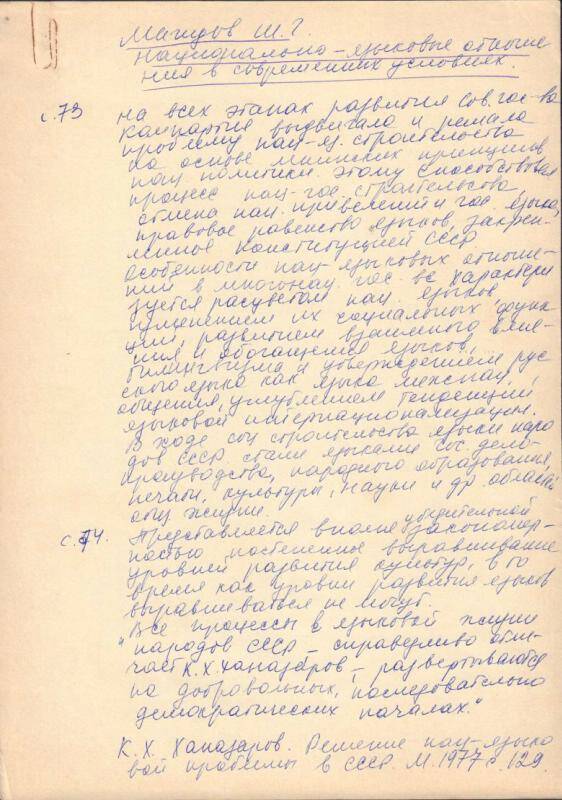 Магидов Ш. Г.
Национально-языковые отноше
ния в современных условиях.
с. 73 на всех этапах развития сов. гос-ва
компартия выдвигала и решала
проблему нац-яз. строительства
на основе ленинских принципов
нац. политики. Этому способствовал
процесс нац-гос. строительства,
отмена нац. привелегий и гос. языка,
правовое равенство языков, закреп-
ленное Конституцией СССР
Особенности нац-языковых отноше-
ний в многонац. гос-ве характери
зуется расцветом нац. языков,
изменением их социальных функ-
ций, развитием взаимного влия-
ния и обогащения языков,
билингвизма и утверждением рус
ского языка как языка межнац.
общения, углублением тенденций
языковой интернационализации.
В ходе соц. строительства языки наро
дов СССР стали языками гос. дело-
производства, народного образования,
печати, культуры, науки и др. областей
общ. жизни.
с. 74. Представляется вполне убедительной закономер-
ностью постепенное выравнивание
уровней развития культур, в то
время как уровни развития языков
выравниваться не могут.
"Все процессы в языковой жизни
народов СССР – справедливо отме-
чает К. Х. Ханазаров, – развертываются
на добровольных, последовательно
демократических началах."
К. Х. Ханазаров. Решение нац-языко
вой проблемы в СССР М. 1977 с. 129.